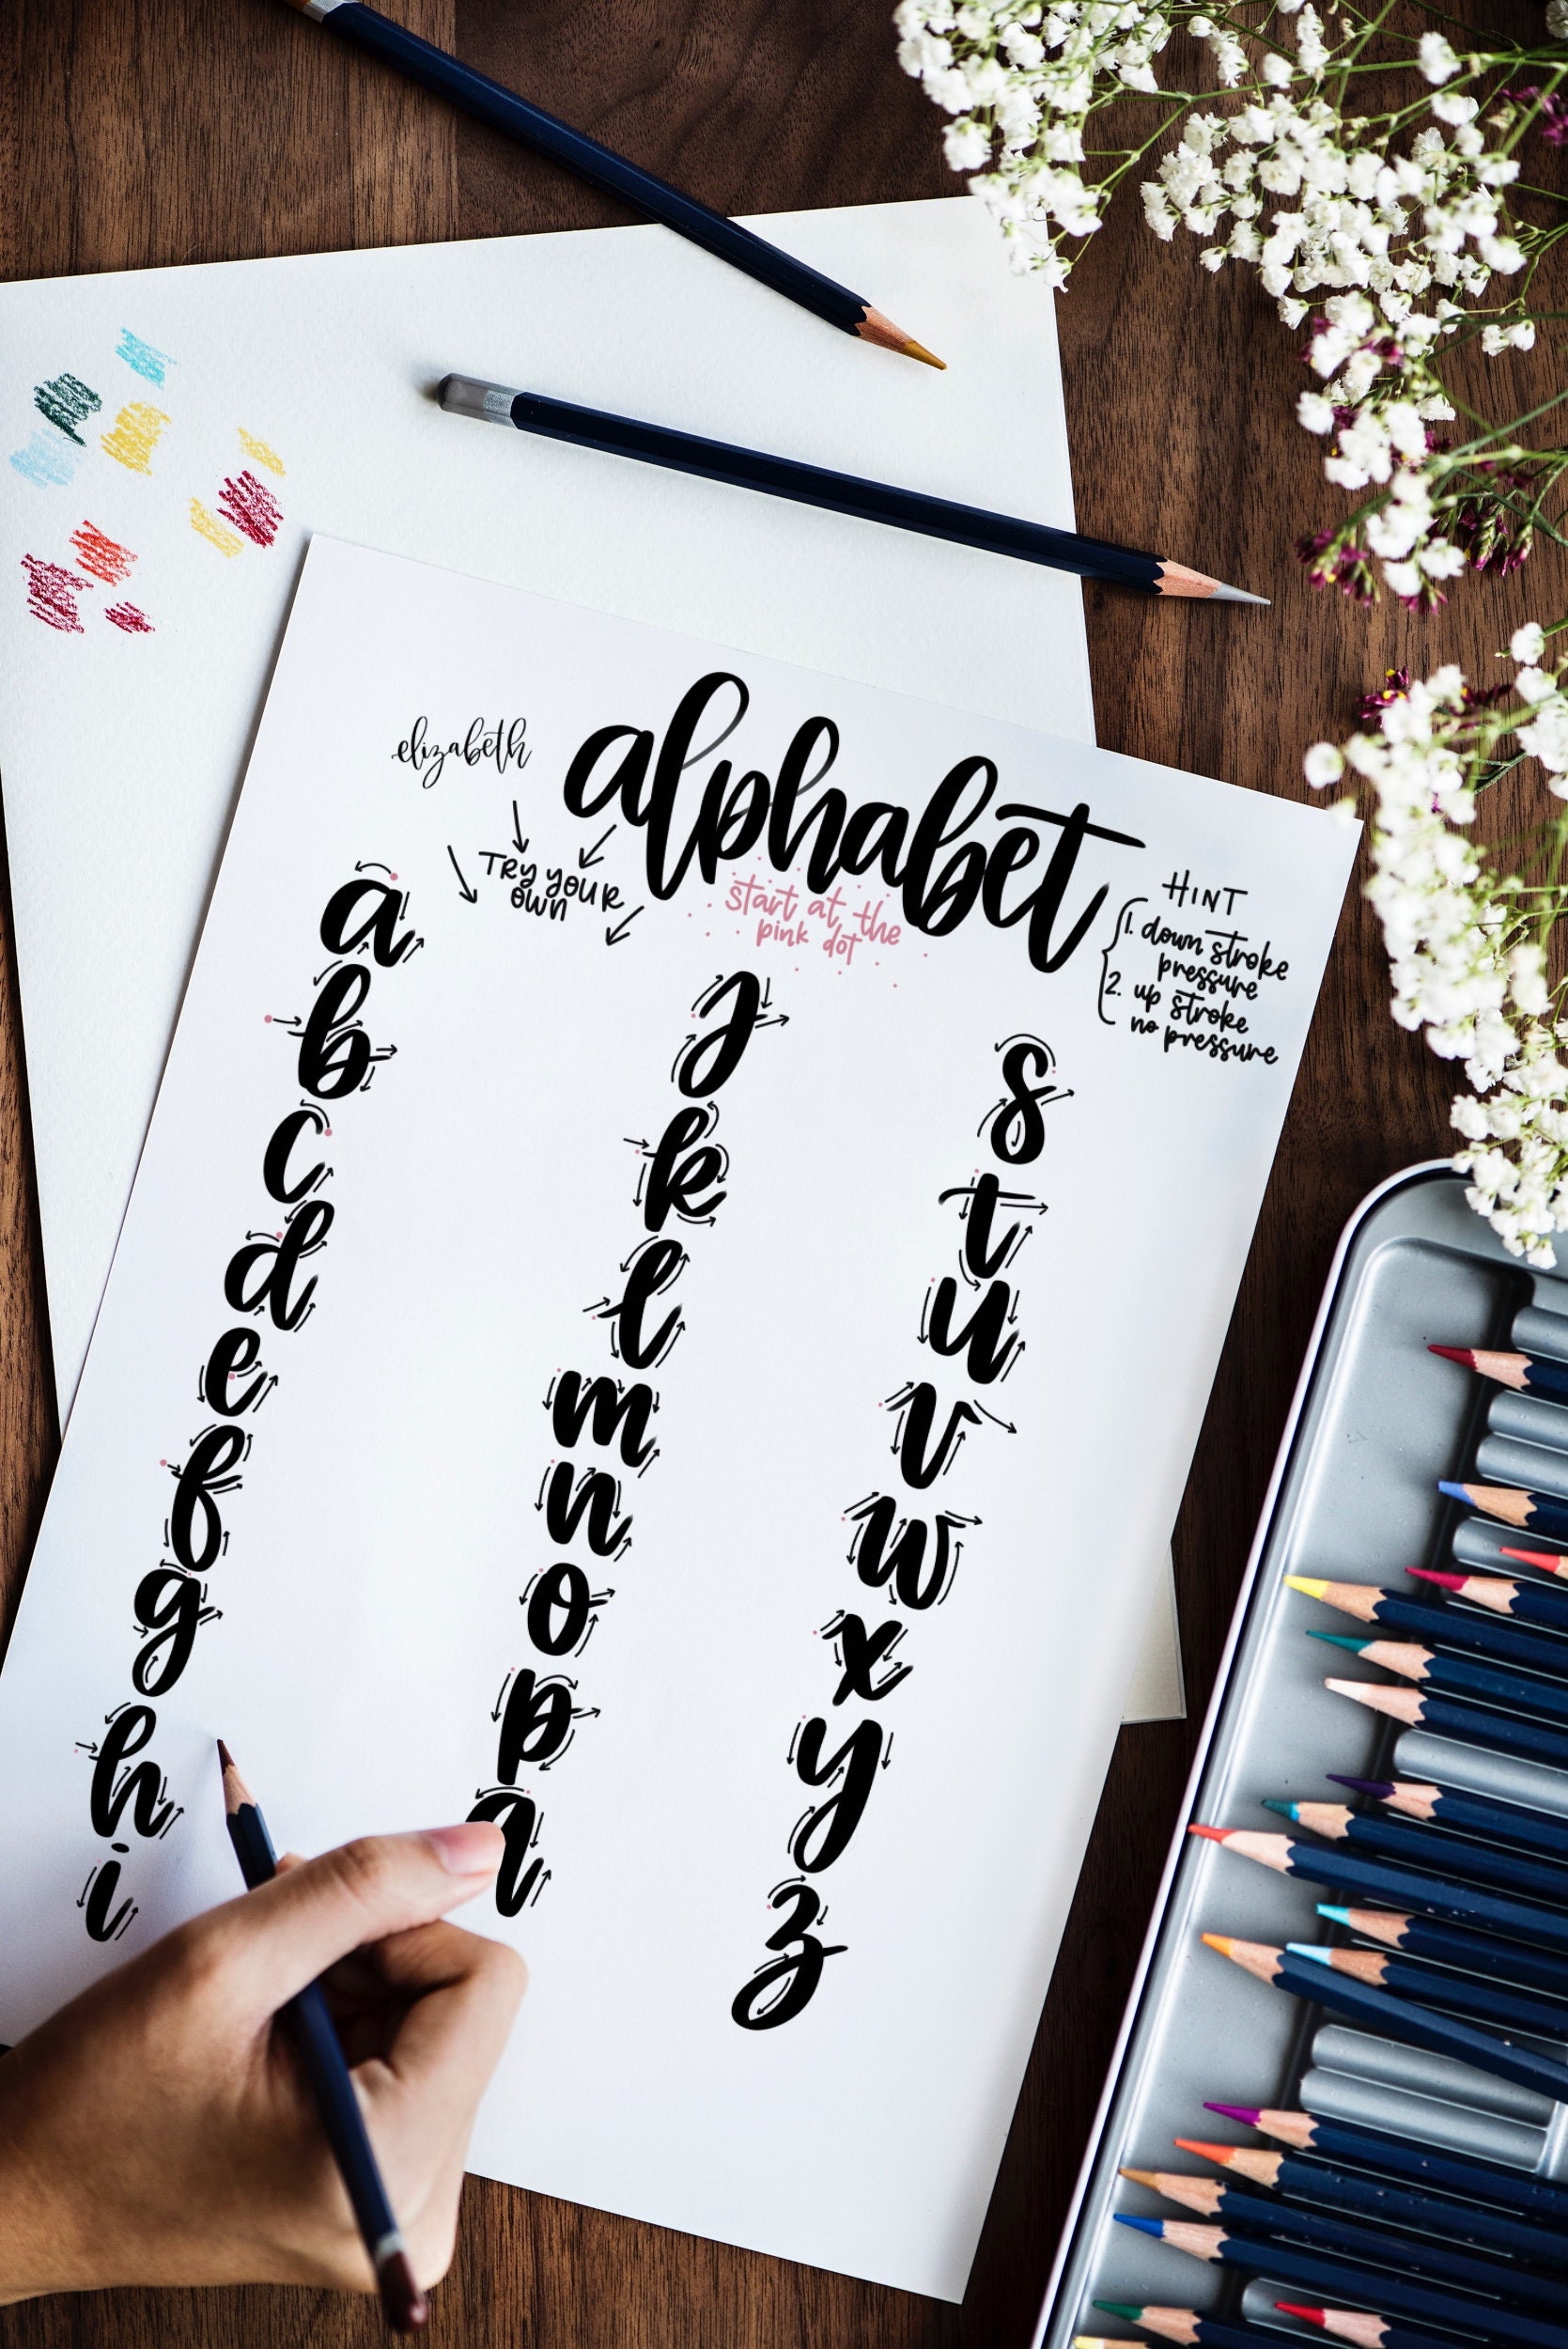 elizabeth
alphabet
TRy youR
own
start at the
pink dot
HINT
1. down stroke
pressure
2. up stroke
no pressure
a
b
c
d
e
f
g
h
i
j
k
l
m
n
o
p
q
s
t
u
v
w
x
y
z